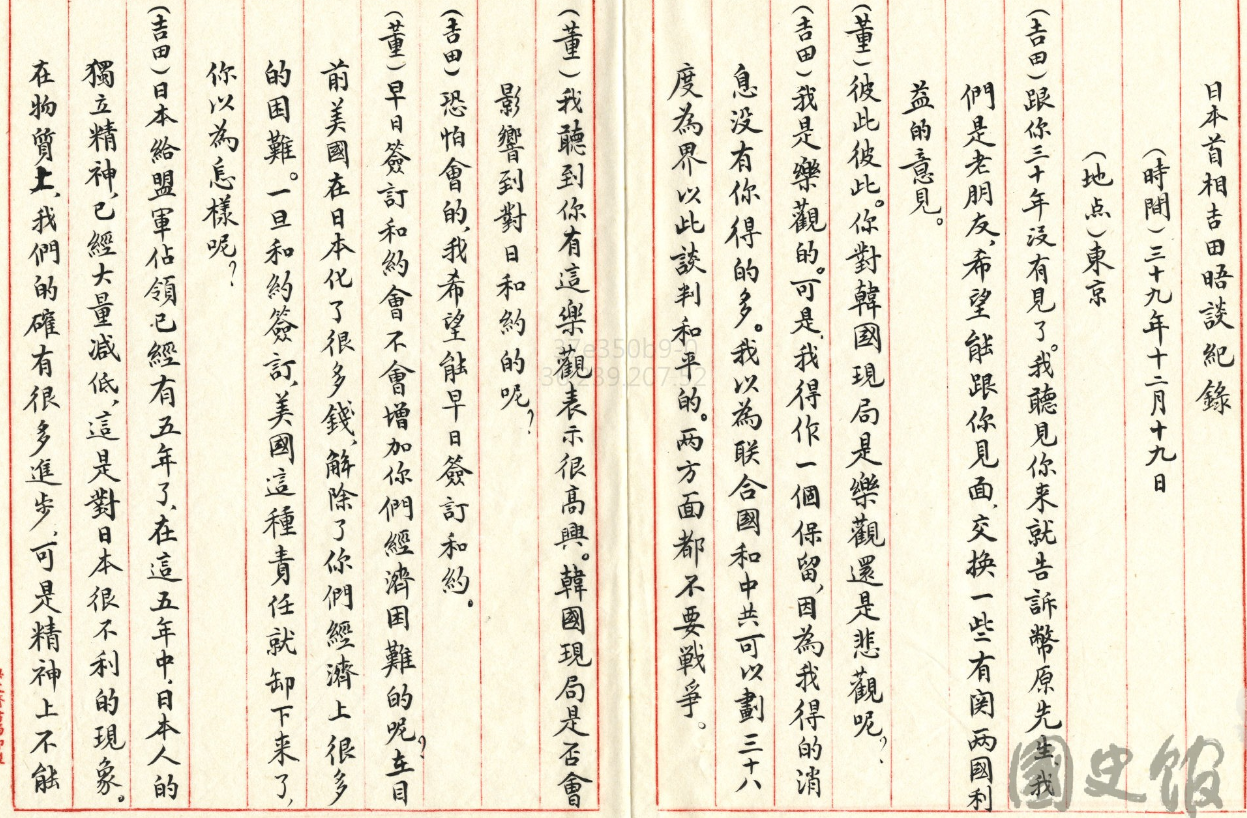 日本首相吉田晤談紀錄
(時間)三十九年十二月十九日
(地点)東京
(吉田)跟你三十年没有見了。我聽見你来就告訴幣原先生,我
們是老朋友,希望能跟你見面,交换一些有関两國利
益的意見。
(董)彼此彼此。你對韓國現局是樂觀還是悲觀呢?
(吉田)我是樂觀的。可是,我得作一個保留,因為我得的消
息没有你得的多。我以為联合國和中共可以劃三十八
度為界以此談判和平的。两方面都不要戰爭。
(董)我聽到你有這樂觀表示很高興。韓國現局是否會
影響到對日和約的呢?
(吉田)恐怕會的,我希望能早日簽訂和約。
(董)早日簽訂和約會不會增加你們經濟困難的呢?在目
前美國在日本化了很多錢,解除了你們經濟上很多
的困難。一旦和約簽訂,美國這種責任就卸下来了,
你以為怎樣呢?
(吉田)日本給盟軍佔領已經有五年了,在這五年中,日本人的
獨立精神,已經大量減低,這是對日本很不利的現象。
在物質上,我們的確有很多進步,可是精神上不能
國史館
37e350b9-0
36.239.207.52